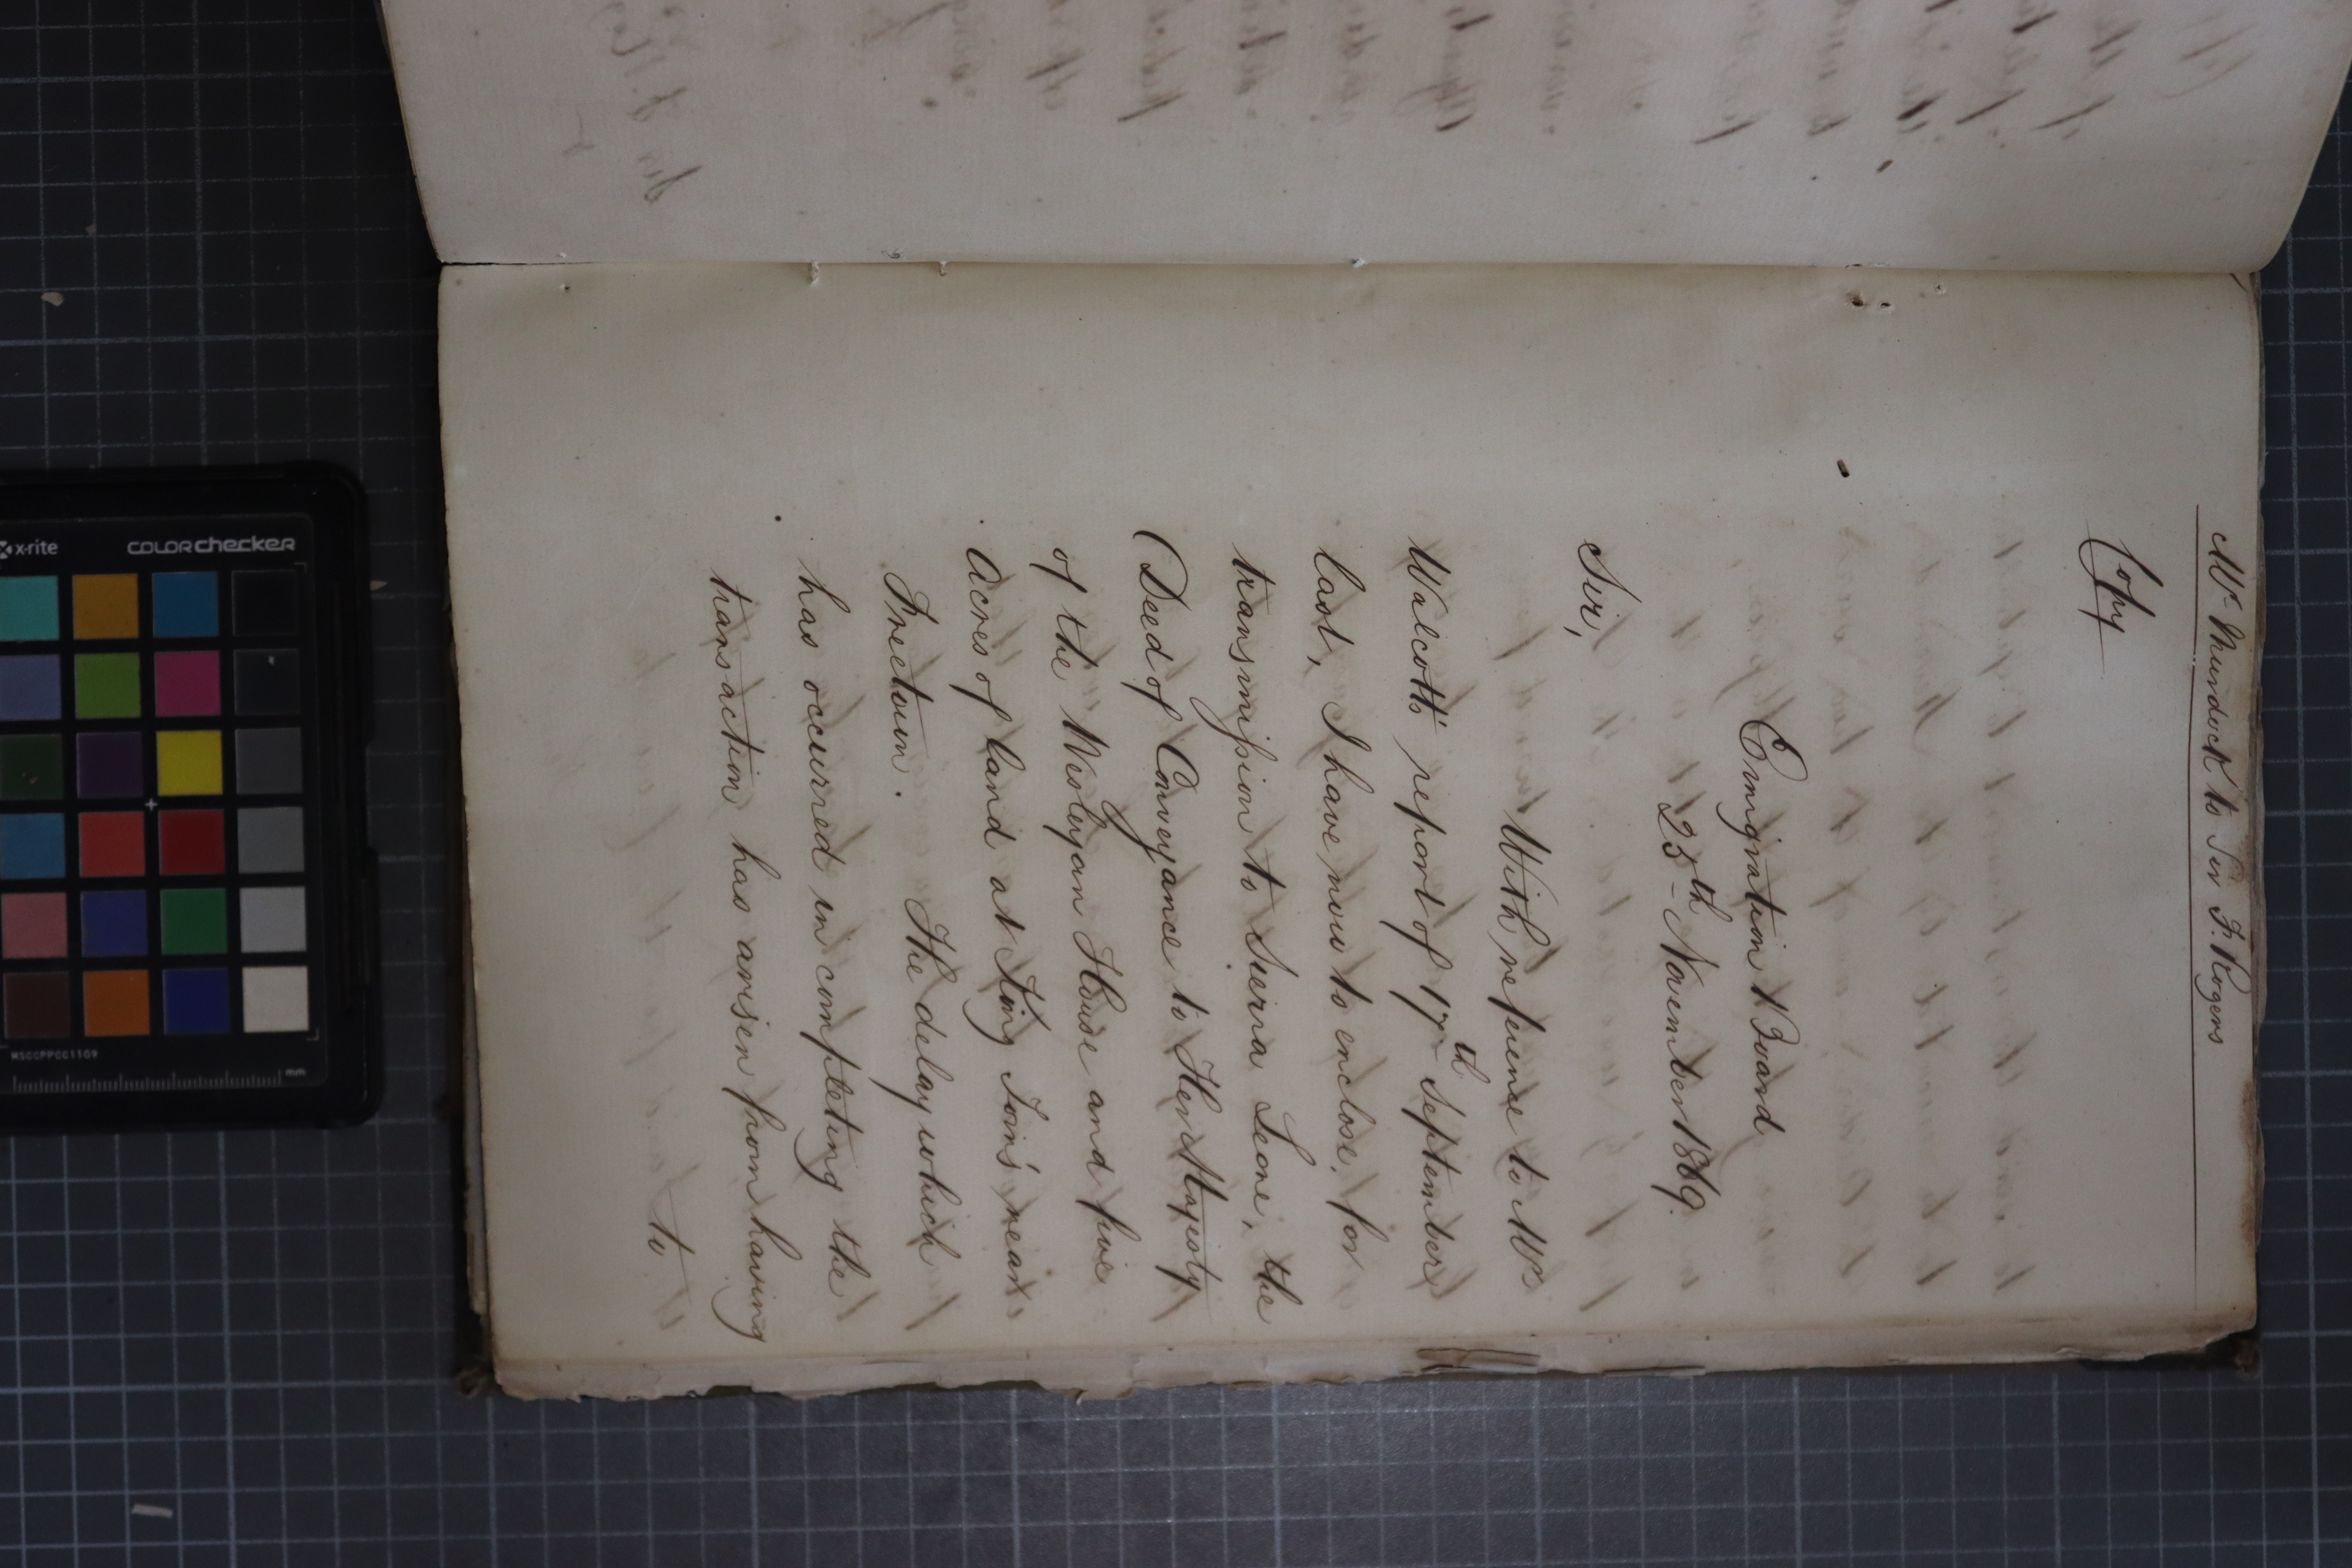 Mr. Murdock to Sir F. Rogers
Copy
Emigration Board
25th November 1869.
Sir,
With reference to Mr
Walcott's report of 17th September
last, I have now to enclose, for
transmission to Sierra Leone, the
Deed of Conveyance to Her Majesty
of the Wesleyan House and five
Acres of land at King Tom's near
Freetown. The delay which
has occurred in completing the
transaction has arisen from having
to
x-rite
COLORchecker
MSCCPPCC1109
mm